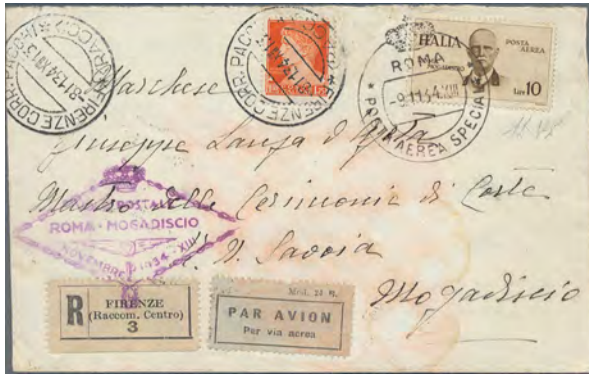 FIRENZE CORR. PACCHI
-8.11.34.XIII
FIRENZE CORR. PACCHI
-8.11.34.XIII
ITALIA
POSTA
AEREA
LIRE 10
ROMA
-9.11.34.XIII
* POSTA AEREA SPECIALE *
Marchese
Giuseppe Lanza d'Ajeta
Mastro delle Cerimonie di Corte
S. M. Savoia
Mogadiscio
POSTALE
ROMA-MOGADISCIO
NOVEMBRE 1934 XIII
R
FIRENZE
(Raccom. Centro)
3
Mod. 24 B.
PAR AVION
Per via aerea